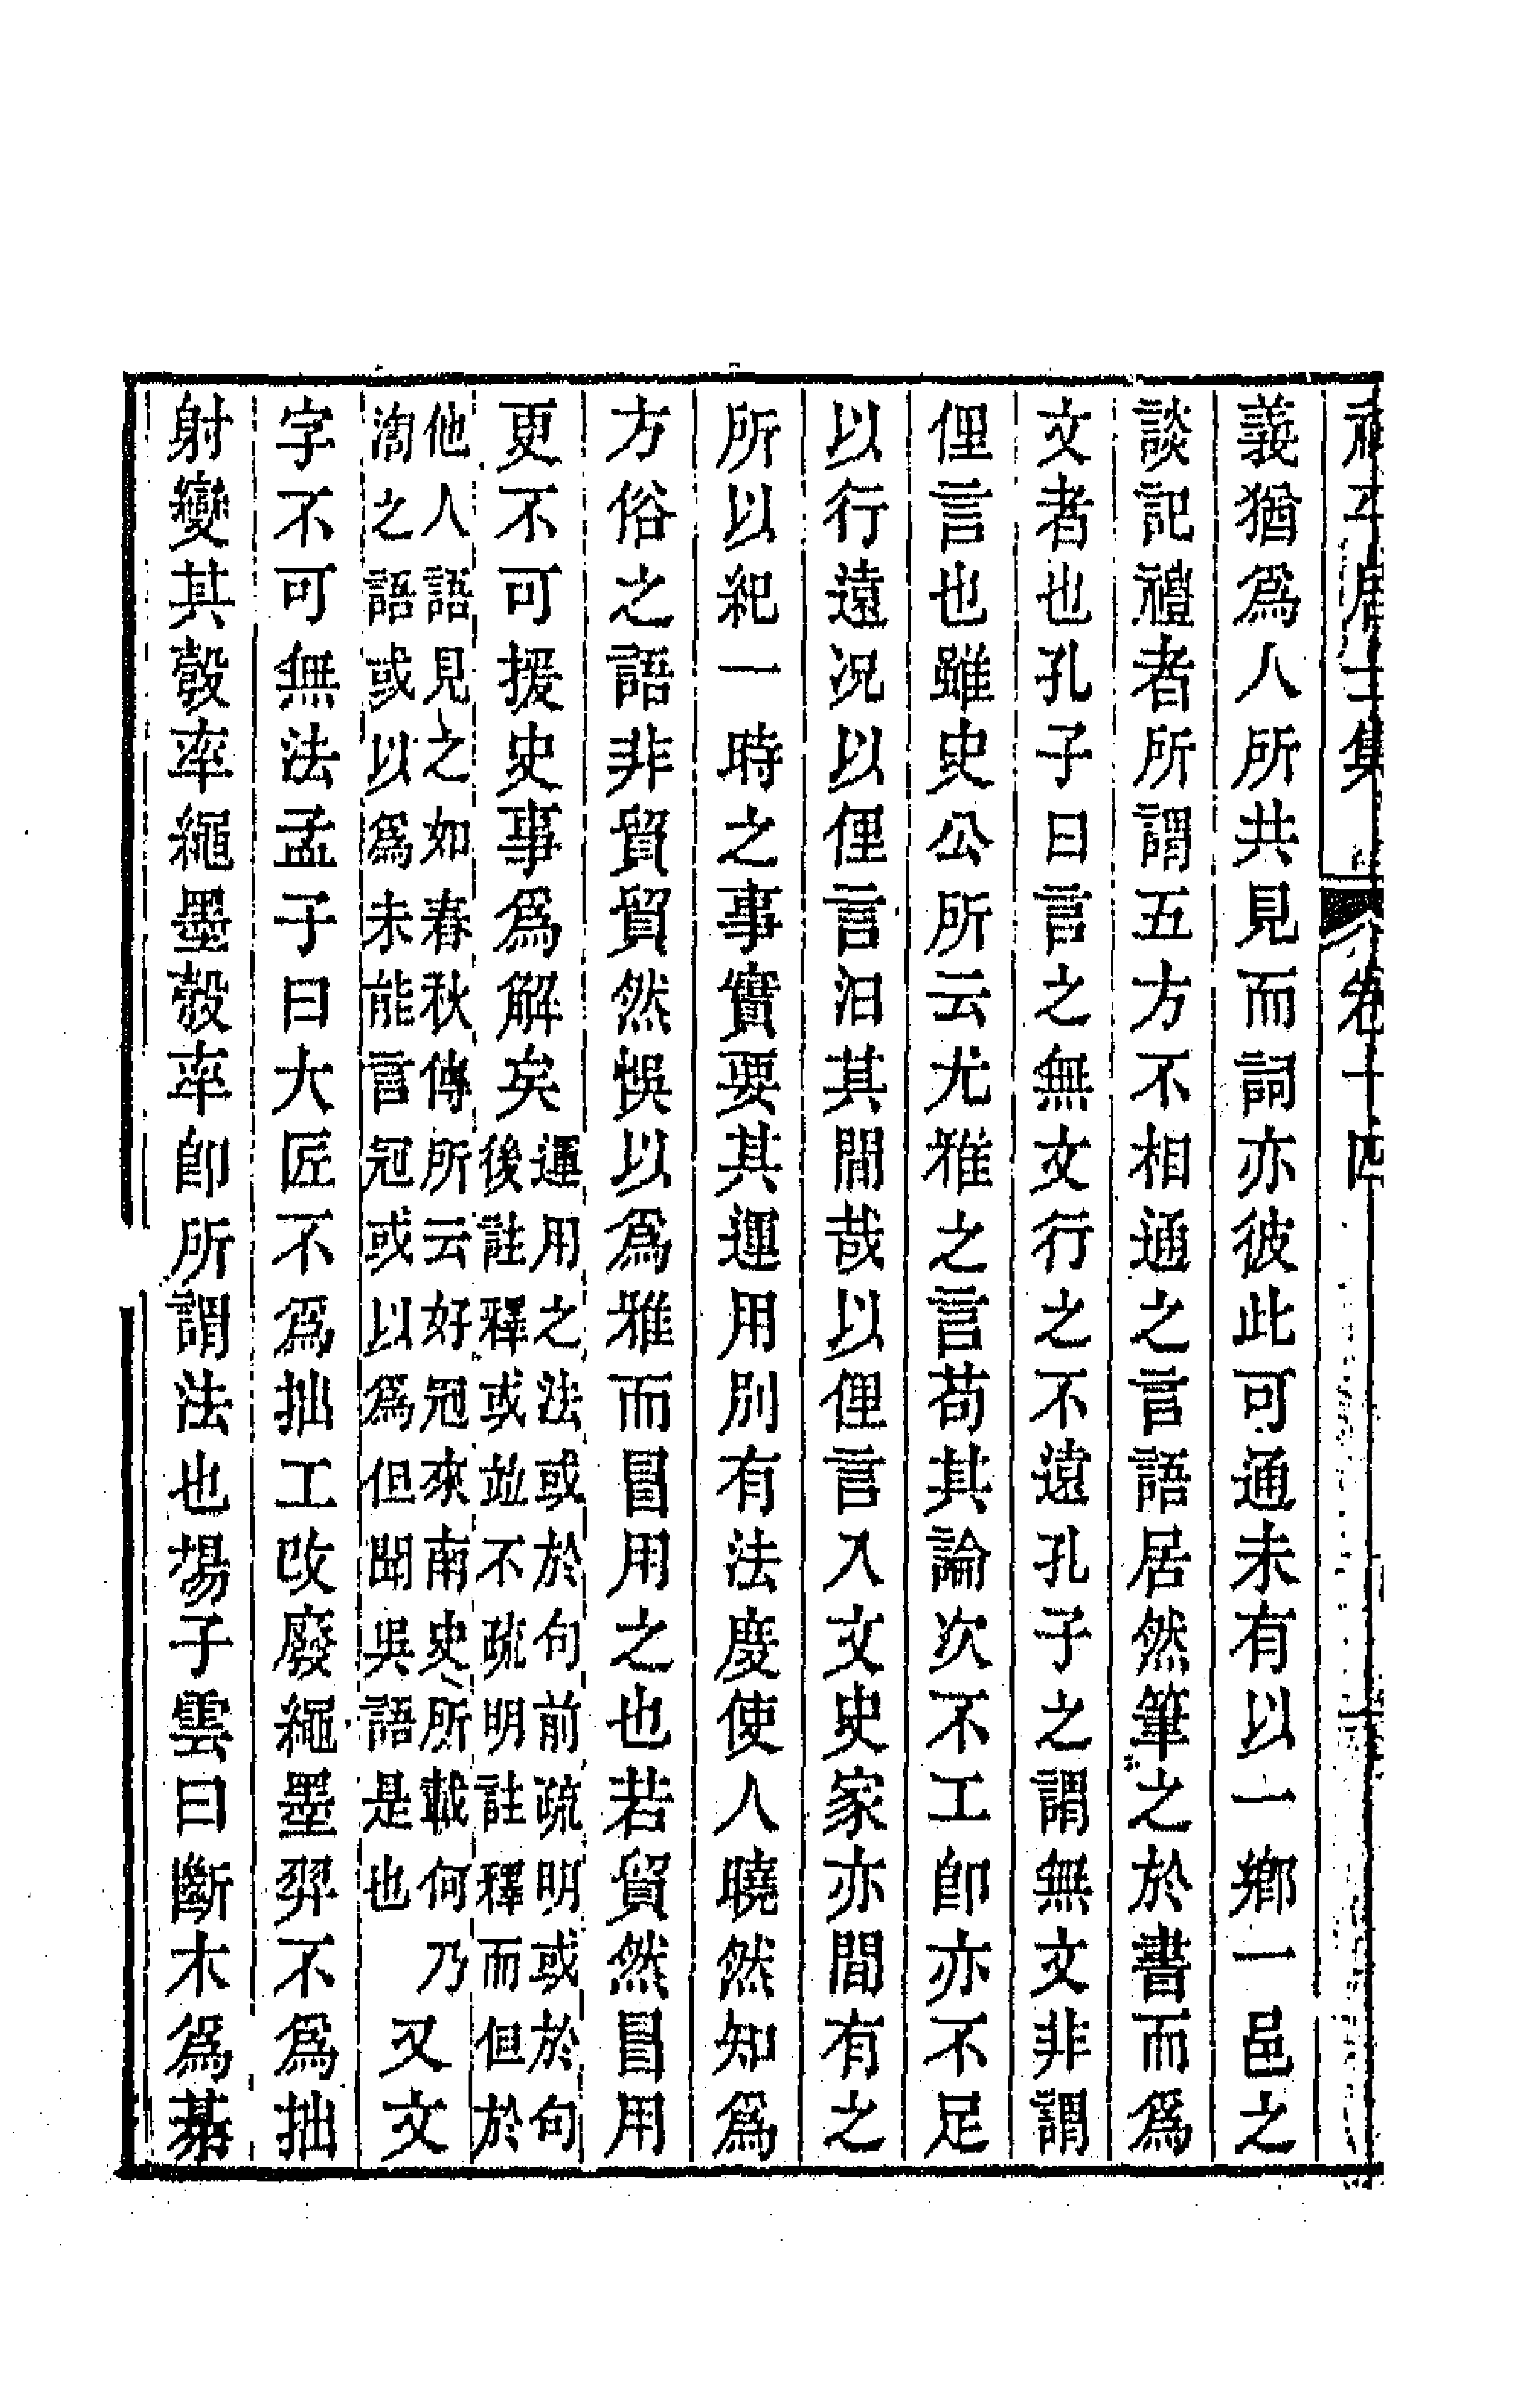 平居士集 卷十四
義猶爲人所共見而詞亦彼此可通未有以一鄉一邑之
談記禮者所謂五方不相通之言語居然筆之於書而爲
文者也孔子曰言之無文行之不遠孔子之謂無文非謂
俚言也雖史公所云尤雅之言苟其論次不工卽亦不足
以行遠況以俚言汨其閒哉以俚言入文史家亦間有之
所以紀一時之事實要其運用別有法慶使人曉然知爲
方俗之語非貿貿然悞以爲雅而冒用之也若貿然冒用
更不可援史事爲解矣
運用之法或於句前疏明或於句
後註釋或並不疏明註釋而但於
他人語見之如春秋傳所云好冠來南史所載何乃
渹之語或以爲未能言冠或以爲但聞吳語是也
又文
字不可無法孟子曰大匠不爲拙工改廢繩墨羿不爲拙
射變其彀率繩墨彀率卽所謂法也揚子雲曰斷木爲棊